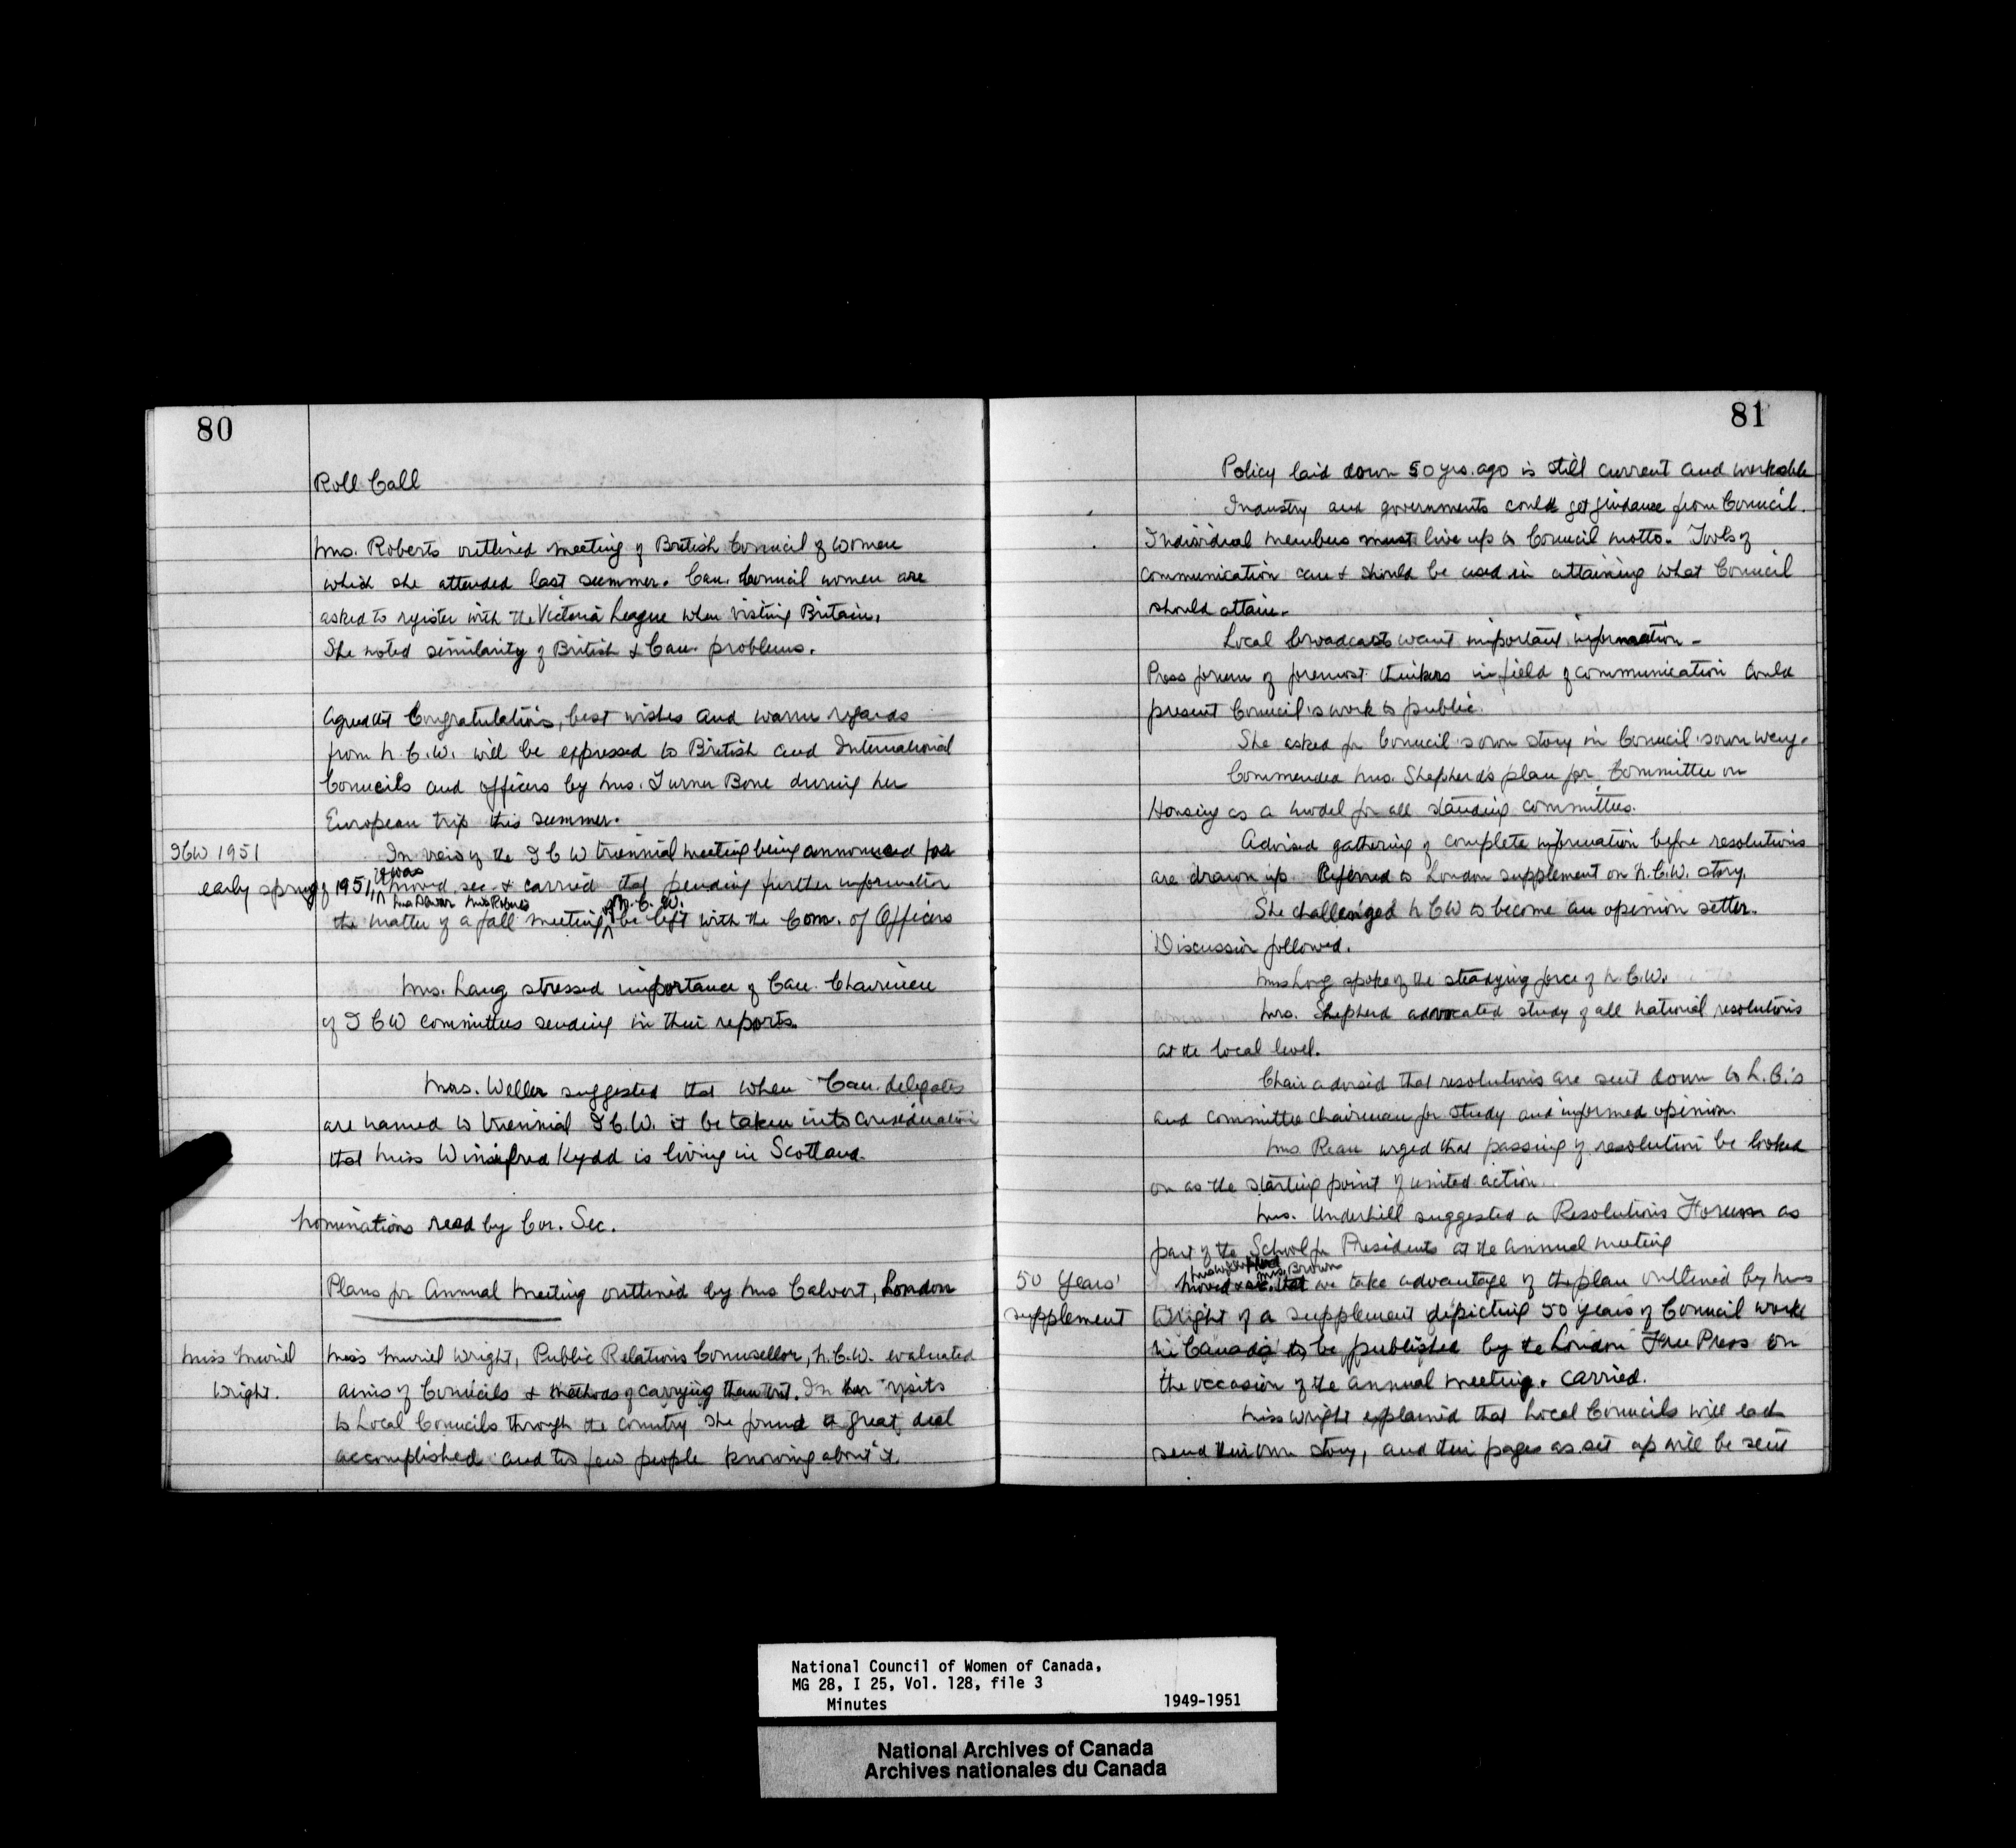 80
Roll Call
Mrs. Roberts outlined meeting of British Council of Women
which she attended last summer. Can. Council women are
asked to register with the Victoria League when visiting Britain.
She noted similarity of British & Can. problems.
Agreed that Congratulations, best wishes and warm regards
from N.C.W. will be expressed to British and International
Councils and officers by Mrs. Turner Bone during her
European trip this summer.
ICW 1951
In view of the I C W triennial meeting being announced for
it was
early spring of 1951, ^ moved, sec. & carried that pending further information
of N.C.W.
the matter of a fall meeting ^ be left with the Com. of Officers
Mrs. Lang stressed importance of Can. Chairmen
of I C W committees sending in their reports.
Mrs. Weller suggested that when Can. delegates
are named to triennial I.C.W. it be taken into consideration
that Miss Winifred Kydd is living in Scotland.
Nominations read by Cor. Sec.
Plans for Annual Meeting outlined by Mrs Calvert, London
Miss Muriel
Wright.
Miss Muriel Wright, Public Relations Counsellor, N.C.W. evaluated
aims of Councils & methods of carrying them out. In her visits
to Local Councils through the country she found a great deal
accomplished and too few people knowing about it.
81
Policy laid down 50 yrs. ago is still current and workable
Industry and governments could get guidance from Council.
Individual members must live up to Council motto. Tools of
communication can & should be used in attaining what Council
should attain.
Local broadcasts want important information -
Press forum of foremost thinkers in field of communication could
present Council's work to public.
She asked for Council's own story in Council's own way.
Commended Mrs. Shepherd's plan for Committee on
Housing as a model for all standing committees.
Advised gathering of complete information before resolutions
are drawn up. Referred to London supplement on N.C.W. story.
She challenged N CW to become an opinion setter.
Discussion followed.
Mrs Long spoke of the steadying force of N.C.W.
Mrs. Shepherd advocated study of all national resolutions
at the local level.
Chair advised that resolutions are sent down to L.C.'s
and committee chairmen for study and informed opinion.
Mrs. Rean urged that passing of resolution be looked
on as the starting point of united action.
Mrs. Underhill suggested a Resolutions Forum as
part of the School for Presidents at the Annual meeting
Mrs. Brown
50 Years'
supplement
Moved & sec. that we take advantage of the plan outlined by Miss
Wright of a supplement depicting 50 years of Council work
in Canada to be published by the London Free Press on
the occasion of the annual meeting. Carried.
Miss Wright explained that Local Councils will each
send their own story, and their pages as set up will be sent
National Council of Women of Canada,
MG 28, I 25, Vol. 128, file 3
Minutes 1949-1951
National Archives of Canada
Archives nationales du Canada